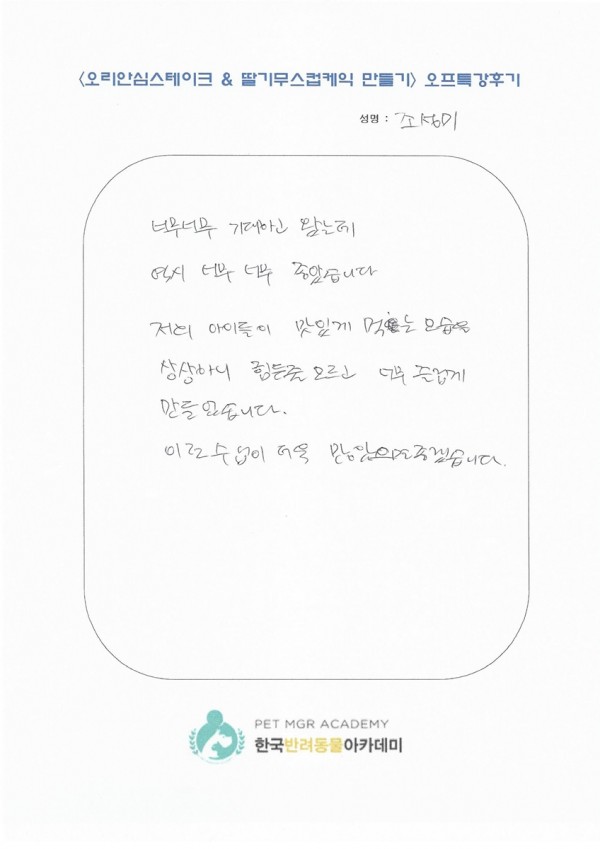 <오리안심스테이크 & 딸기무스컵케익 만들기> 오프특강후기
성명 : 조성미
너무너무 기대하고 왔는데
역시 너무 너무 좋았습니다
저희 아이들이 맛있게 먹는 모습을
상상하니 힘든줄 모르고 너무 즐겁게
만들었습니다.
이런 수업이 더욱 많았으면 좋겠습니다.
PET MGR ACADEMY
한국반려동물아카데미